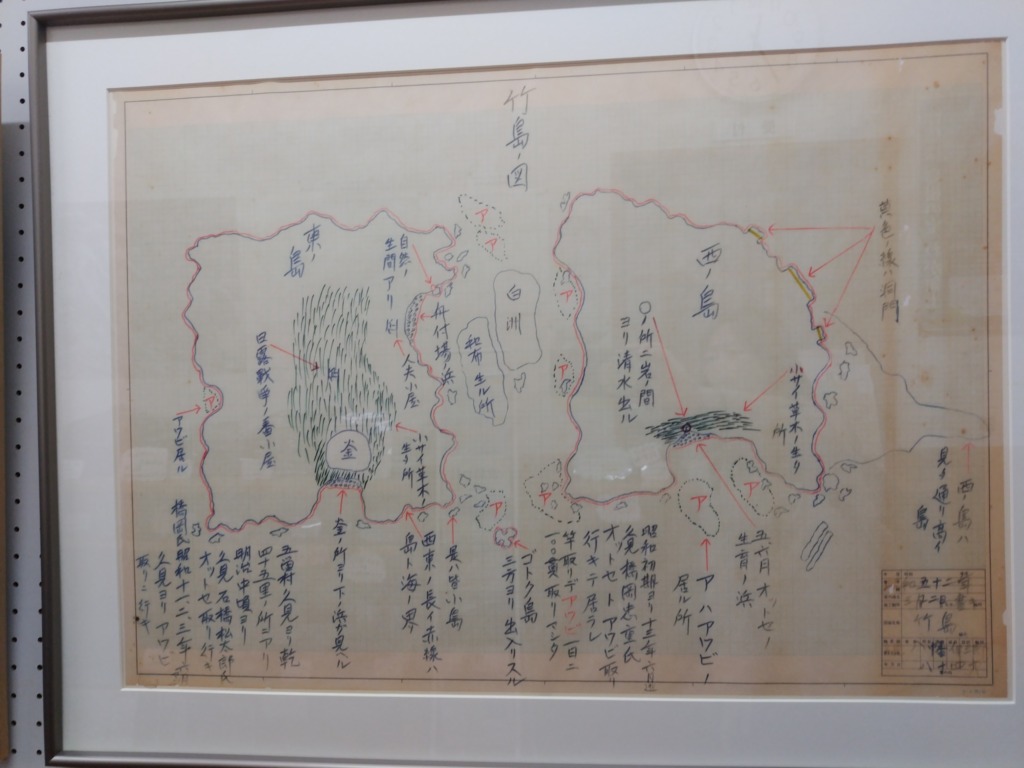 竹島ノ図
黄色ノ後ハ洞門
西ノ島
○ノ所ニ岩ノ間
ヨリ清水出ル
小サイ草木ノ生タ
所
西ノ島ハ
見タ通リ高イ
島
五六月オットセノ
生育ノ浜
アハアワビノ
居ル所
ア
ア
ア
ア
ア
ア
ア
ア
白洲
和布生ル所
東ノ島
自然ノ
生間アリ
舟付場ノ浜
人夫小屋
小サイ草木ノ
生タ所
日露戦争ノ番小屋
釜
アワビ居ル
ゴトク島
三方ヨリ出入リスル
昭和初期ヨリ十三年六月迄
久見橋岡忠重氏
オトセトアワビ取リ
行キテ居ラレ
竿取リデアワビ一日ニ
一〇〇貫取リマシタ
是ハ皆小島
西東ノ長イ赤線ハ
島ト海ノ界
釜ノ所ヨリ下ノ浜ガ見ヘル
五箇村久見ヨリ乾
四十五里ノ所ニアリ
明治中頃ヨリ
久見石橋松太郎氏
オットセ取リ行ク
昭和十一二、三年
橋岡氏
久見ヨリアワビ
取リニ行キ
竹島